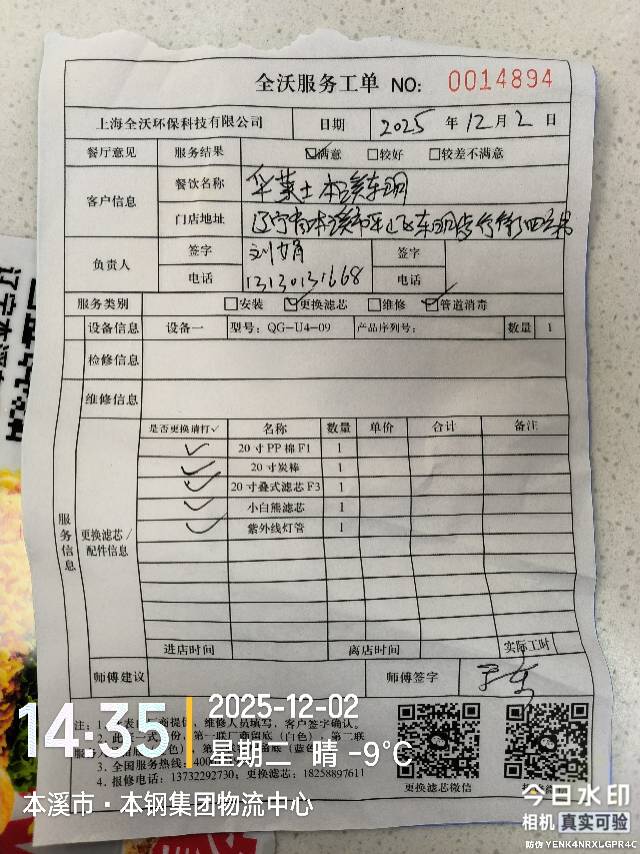 全沃服务工单 NO: 0014894
上海全沃环保科技有限公司 日期 2025 年 12 月 2 日
餐厅意见 服务结果 ☑满意 □较好 □较差不满意
客户信息 餐饮名称 华莱士本溪东明
门店地址 辽宁省本溪市平山区东明步行街
负责人 签字 签字
电话 13130131668 电话
服务类别 □安装 ☑更换滤芯 □维修 ☑管道消毒
设备信息 设备一 型号: QG-U4-09 产品序列号: 数量 1
检修信息
维修信息
服务信息
更换滤芯/配件信息
是否更换请打✓ 名称 数量 单价 合计 备注
✓ 20寸PP棉F1 1
✓ 20寸炭棒 1
✓ 20寸叠式滤芯F3 1
✓ 小白熊滤芯 1
✓ 紫外线灯管 1
进店时间 离店时间 实际工时
师傅建议 师傅签字
注: 1.
提供, 维修人员填写, 客户签字确认。
2. 此
第一联厂商留底(白色), 第二联
3. 全国服务热线: 400
4. 报修电话: 13732292730; 更换滤芯: 18258897611
更换滤芯微信
14:35
2025-12-02
星期二 晴 -9℃
本溪市·本钢集团物流中心
今日水印
相机 真实可验
防伪 YENK4NRXLGPR4C